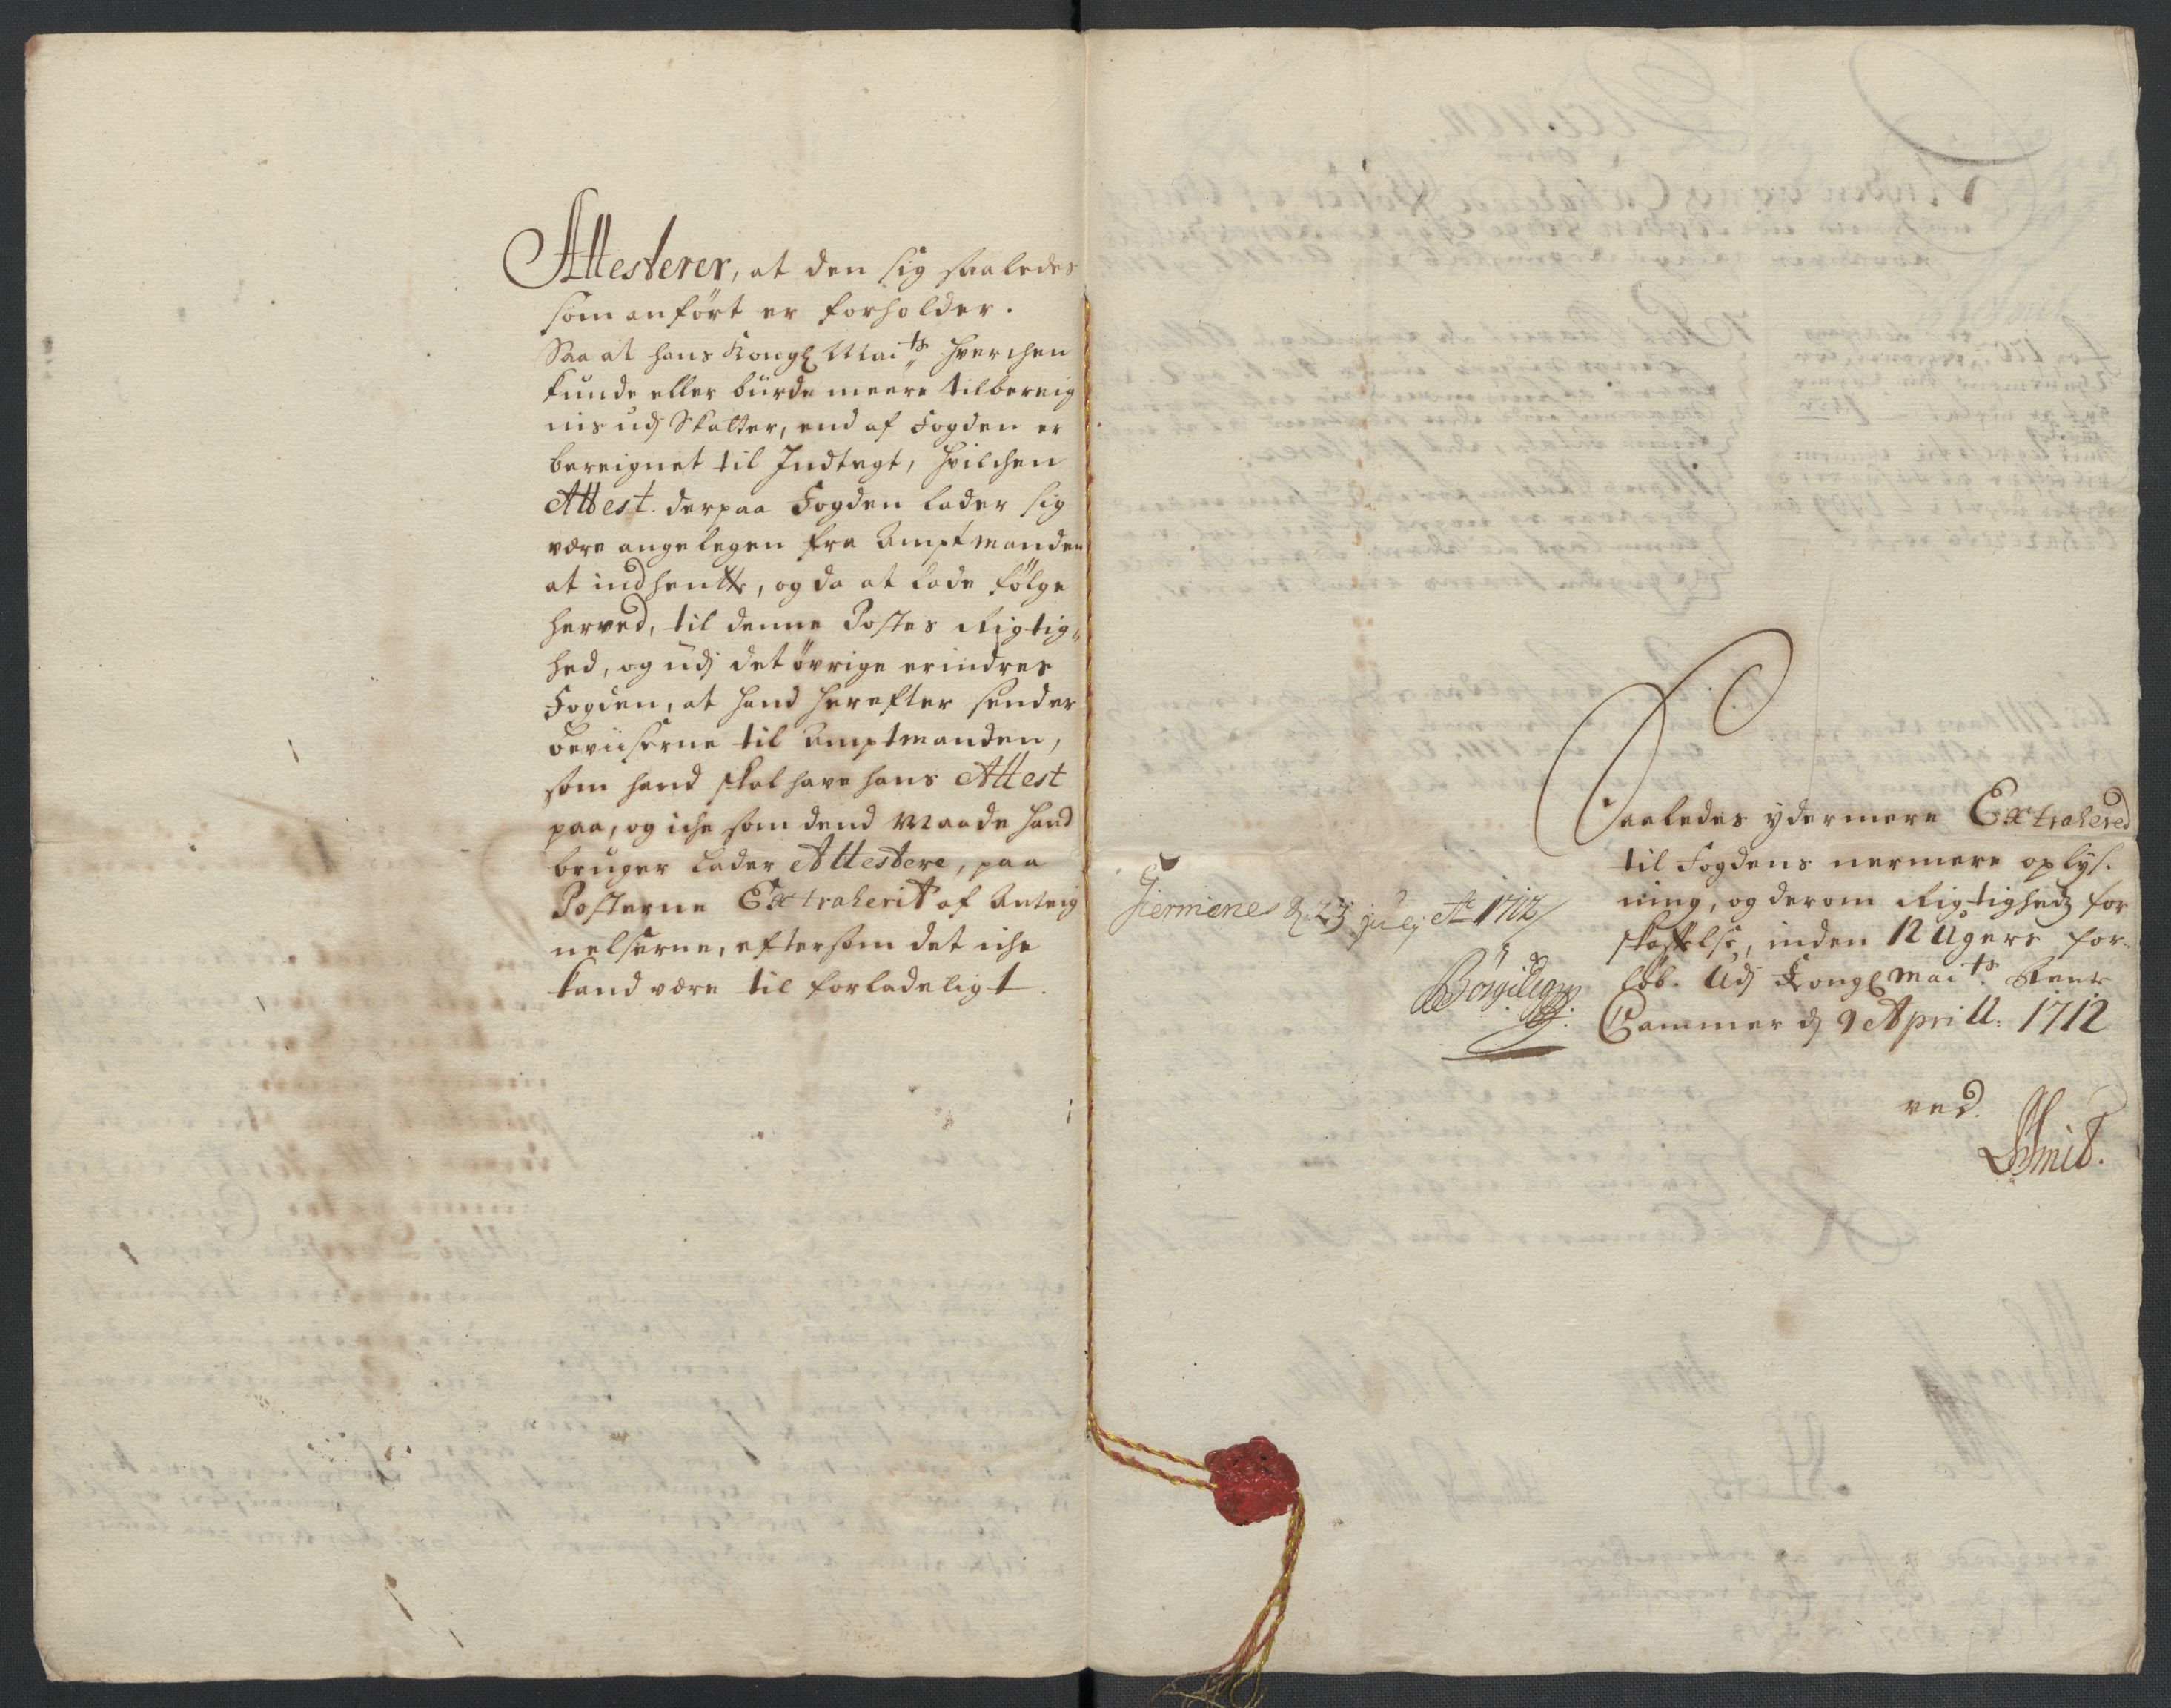 Attesterer, at den sig saaledes
som anført er forholder.
Saa at hans Kongl Mai^ts hverchen
kunde eller burde meere tilbereig
nis udj Skatter, end af Fogden er
bereignet til Indtegt, hvilchen
Attest. derpaa Fogden lader sig
være angelegen fra Amptmanden
at indhentte, og da at lade følge
herved, til denne Postes Rigtig„
hed, og udj det øvrige erindres
Fogden, at hand herefter sender
beviiserne til Amptmanden,
som hand skal have hans Attest
paa, og iche som dend Maade hand
bruger lader Attestere, paa
Posterne Extraherit af Anteig
nelserne, eftersom det iche
kand være til forladeligt.
Saaledes ydermere Extahered
til Fogdens nermere oplys.
ning, og derom Rigtighedz for
skaffelse, inden 12 Ugers for„
løb. Udj Kongl Mai^ts. Rente
Cammer dj 9 Aprill: 1712
ved.
Smid.
d. 23 julij A^o 1712